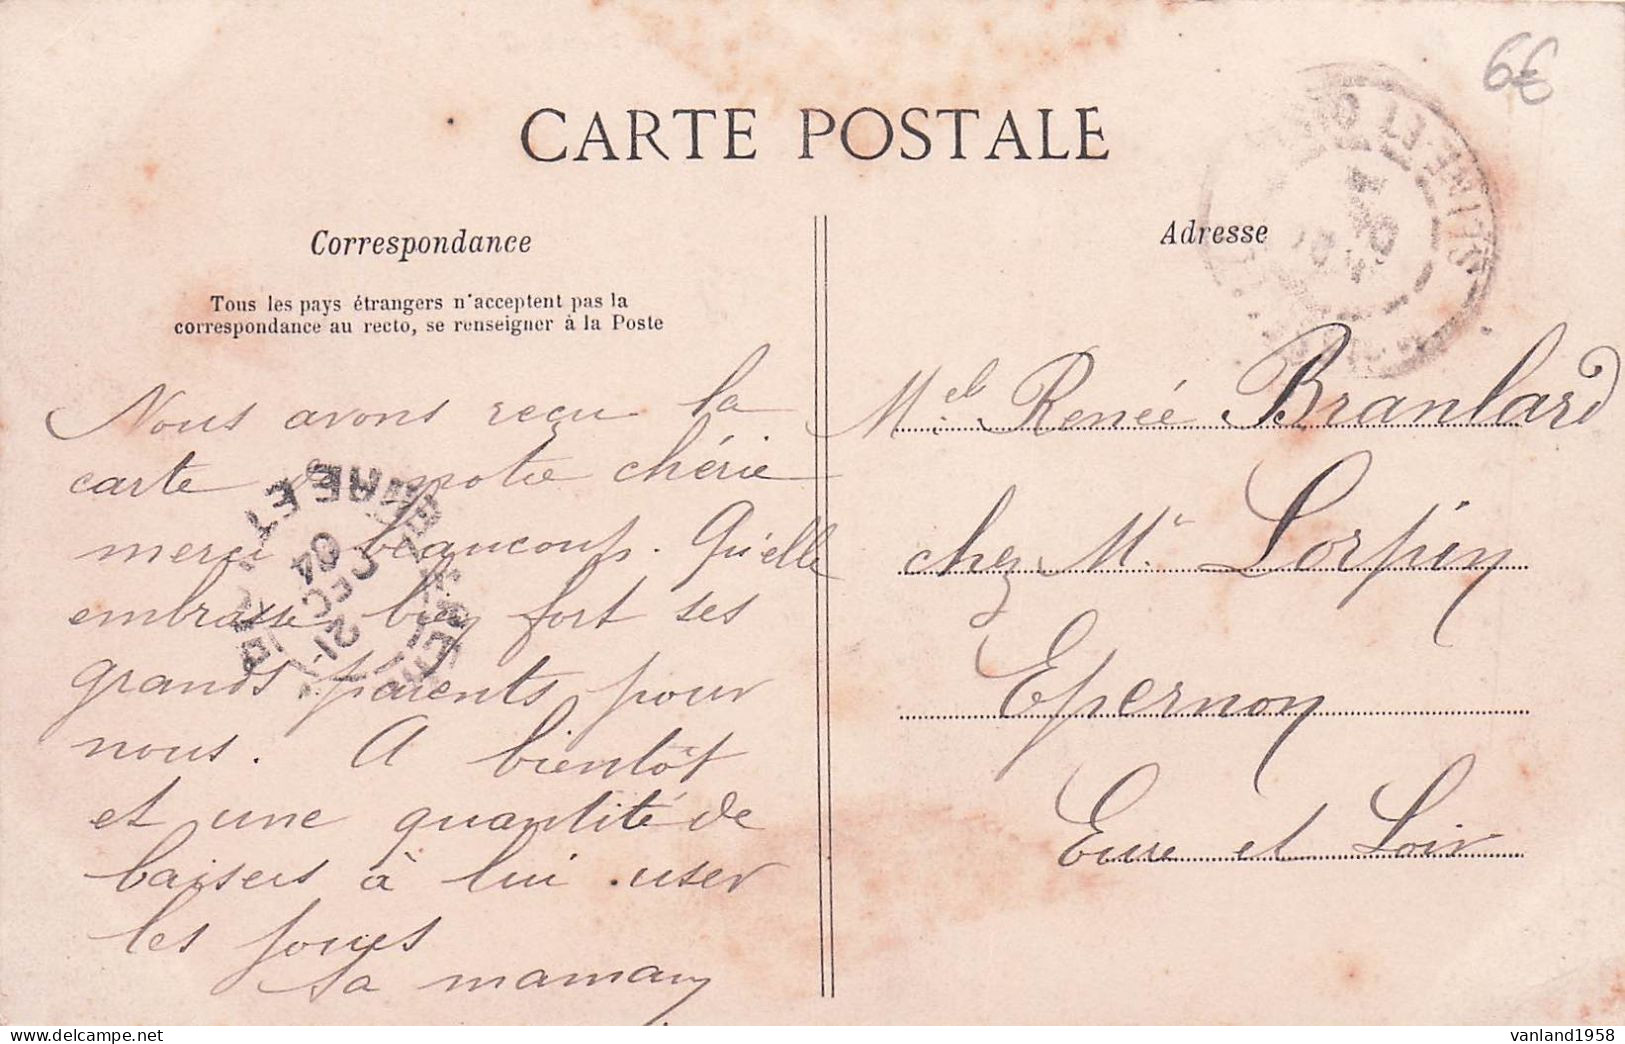 6€
CARTE POSTALE
Correspondance
Tous les pays étrangers n'acceptent pas la
correspondance au recto, se renseigner à la Poste
Nous avons reçu la
carte de notre chérie
merci beaucoup. Qu'elle
embrasse bien fort ses
grands parents pour
nous. A bientôt
et une quantité de
baisers à lui user
les joues
Sa maman
21
DEC
04
Adresse
SEINE-ET-OISE
Melle Renée Branlard
chez Mr Lorpin
Epernon
Eure et Loir
vanland1958